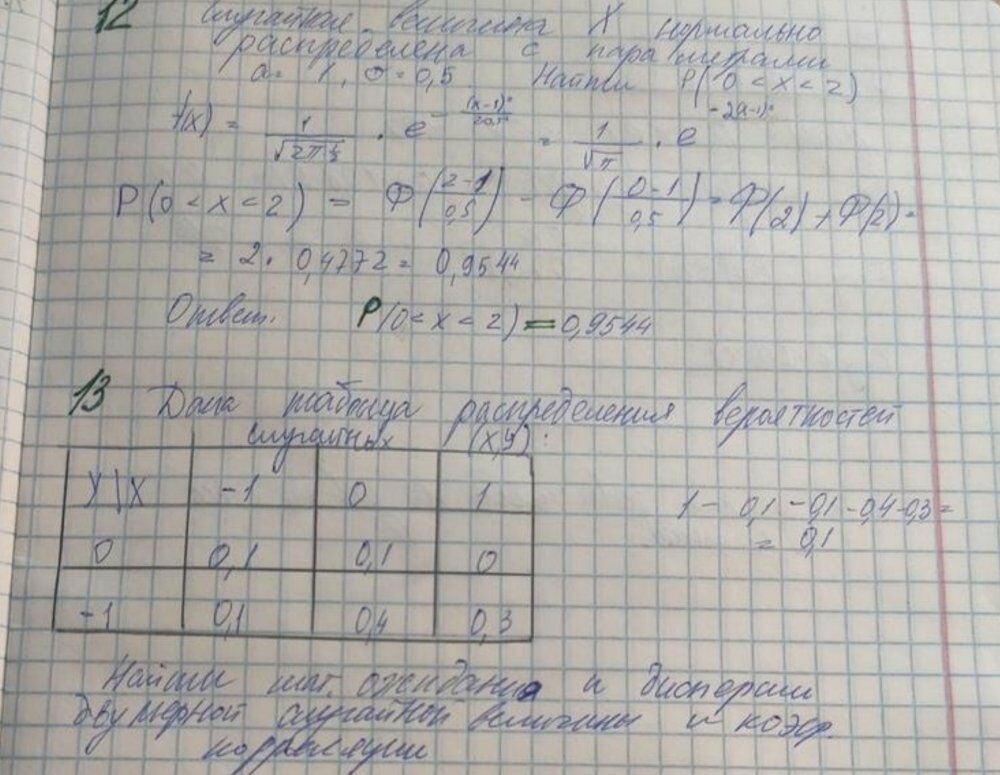 12 Случайная величина X нормально
распределена с параметрами
a = 1, σ = 0,5 Найти P(0 < x < 2)
f(x) = 1/√2π · e^-(x-1)² = 1/√π · e^-2(x-1)²
P(0 < x < 2) = Ф(2-1/0,5) - Ф(0-1/0,5) = Ф(2) + Ф(2) =
= 2 · 0,4772 = 0,9544
Ответ. P(0 < x < 2) = 0,9544
13 Дана таблица распределения вероятностей
случайных (X,Y):
Y\X -1 0 1
0 0,1 0,1 0
-1 0,1 0,4 0,3
1 - 0,1 - 0,1 - 0,4 - 0,3 =
= 0,1
Найти мат. ожидания и дисперсии
двумерной случайной величины и коэф.
корреляции